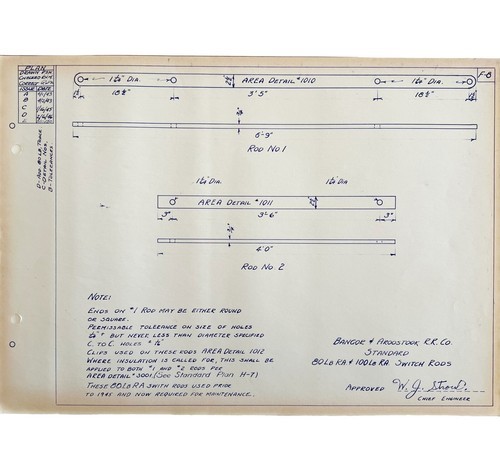 PLAN
ISSUE DATE
A
B
C
D
D-ADD 80 LB. TRACE.
C-DETAIL NOS.
B-TOLERANCES
F-6
1¼" DIA.
AREA DETAIL #1010
1¼" DIA.
18½"
3'-5"
18½"
6'-9"
ROD NO. 1
1¼" DIA.
1¼" DIA
AREA DETAIL #1011
3"
3'-6"
3"
4'-0"
ROD NO. 2
NOTE:
ENDS ON #1 ROD MAY BE EITHER ROUND
OR SQUARE.
PERMISSABLE TOLERANCE ON SIZE OF HOLES
BUT NEVER LESS THAN DIAMETER SPECIFIED
C. TO C. HOLES
CLIPS USED ON THESE RODS AREA DETAIL 1012
WHERE INSULATION IS CALLED FOR, THIS SHALL BE
APPLIED TO BOTH #1 AND #2 RODS PER
AREA DETAIL #3001. (See Standard Plan H-7)
THESE 80 LB RA SWITH RODS USED PRIOR
TO 1945 AND NOW REQUIRED FOR MAINTENANCE.
BANGOR & AROOSTOOK R.R. CO.
STANDARD
80 LB RA & 100 LB RA SWITCH RODS
APPROVED W. J. Strout.
CHIEF ENGINEER